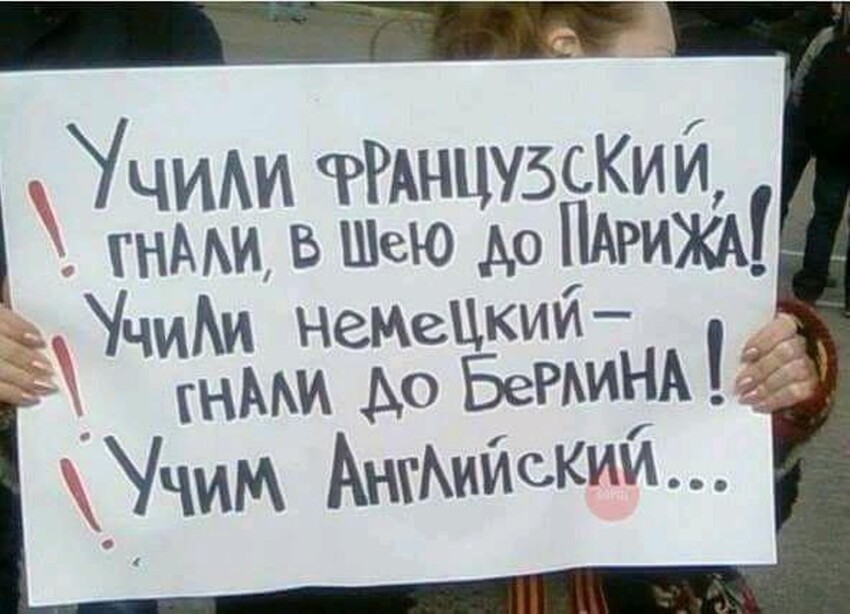 ! Учили французский,
гнали, в шею до Парижа!
! Учили немецкий –
гнали до Берлина!
! Учим Английский...